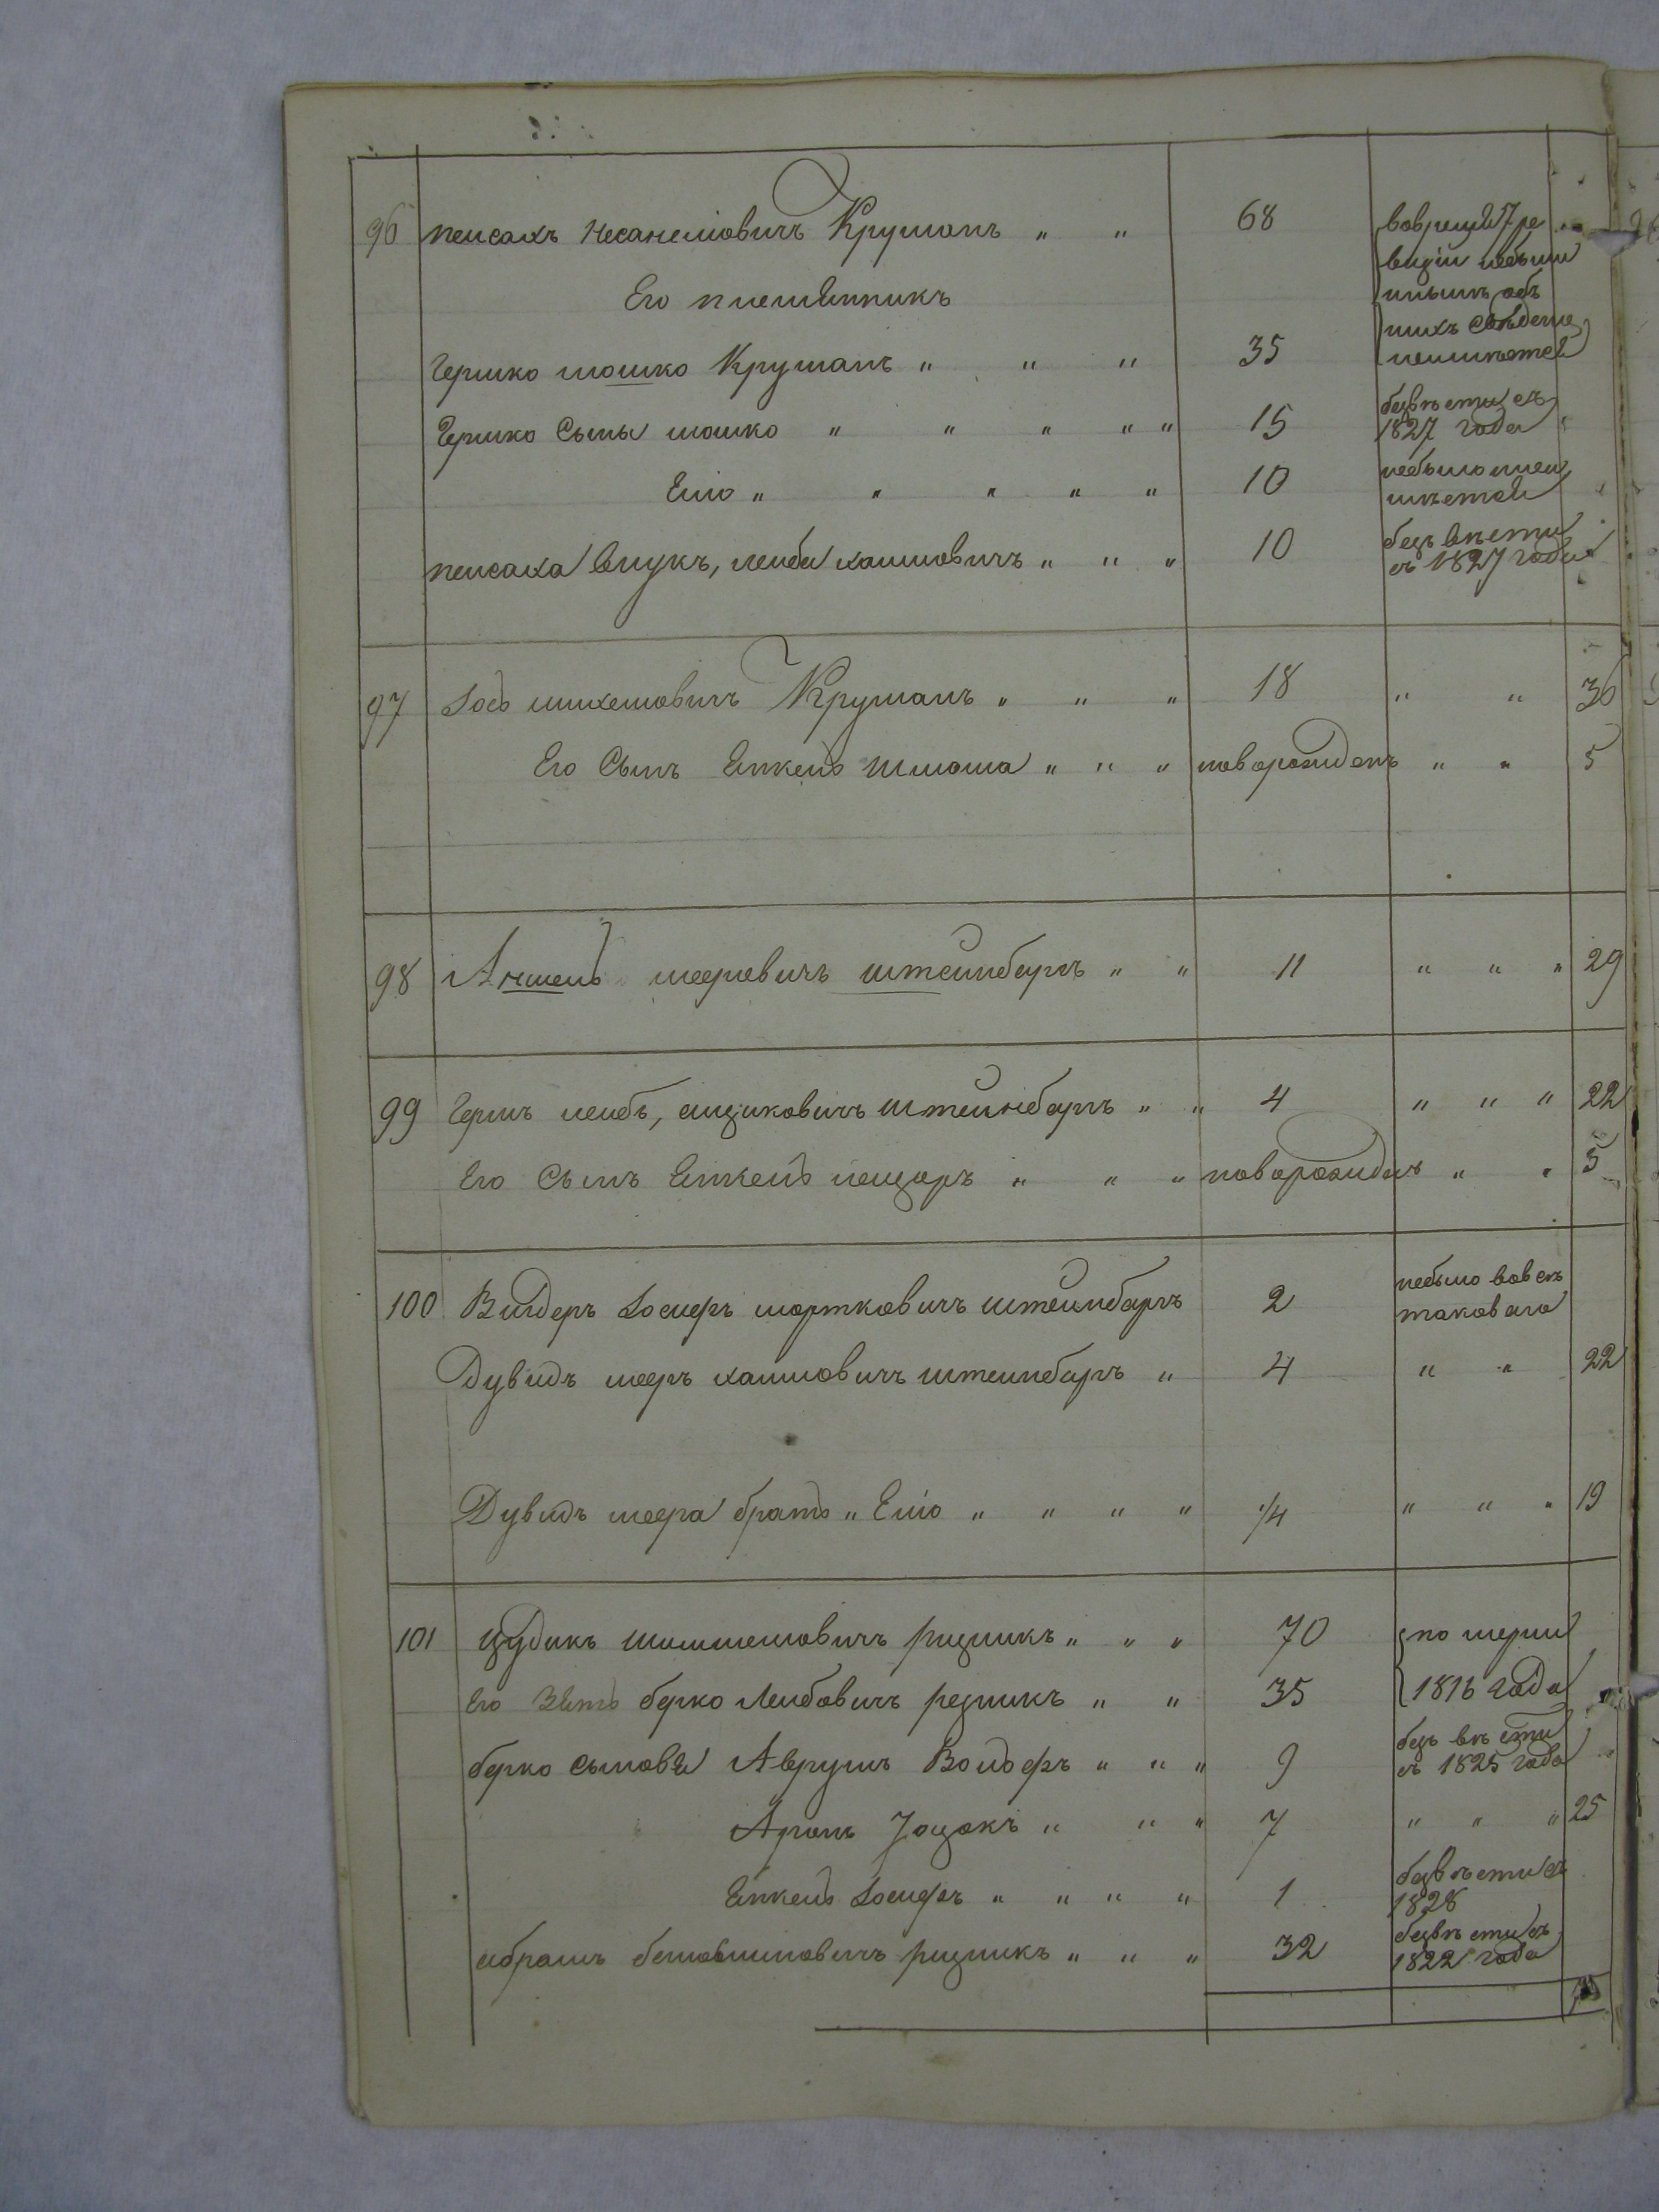 96 пейсахъ Несанелiовичъ Круманъ " " 68 вовремя 7 ре
визiи небыли
иныхъ объ
нихъ сведе
неимѣетса
Его племянникъ
Гершко мошко Круманъ " " " 35
Гершко Сыны мошко " " " " " 15 безвѣсти съ
1827 года
Елiо " " " " " 10 небыло
имѣетса
пейсаха внукъ, лейба хаимовичъ " " " 10 безъ вѣсти
съ 1827 года
97 Iось михелiовичъ Круманъ " " " 18 " " 36
Его Сынъ Янкель Шлiома " " " новорожденъ " " 5
98 Аншель меэровичъ штейнбергъ " " 11 " " " 29
99 Гершъ лейбъ, ицковичъ штейнбергъ " " 4 " " " 22
Его Сынъ Янкель лейзеръ " " " новорожденъ " " 5
100 Вигдеръ Iосифъ мортковичъ штейнбергъ 2 небыло вовсѣ
таковаго
Дувидъ меэръ хаимовичъ штейнбергъ " 4 " " 22
Дувидъ меэра братъ " Елiо " " " " 1/4 " " " 19
101 Цудикъ Шмилiовичъ ризникъ " " " 70 помери
1816 года
Его Зять берко Лейбовичъ резникъ " " 35
берко сыновя Аврумъ Волофъ " " " 9 безъ вѣсти
съ 1825 года
Аронъ Iоцокъ " " " 7 " " " 25
Янкель Iосифъ " " " " 1 безвѣсти съ
1828
абрамъ ризникъ " " " 32 безвѣсти съ
1822 года